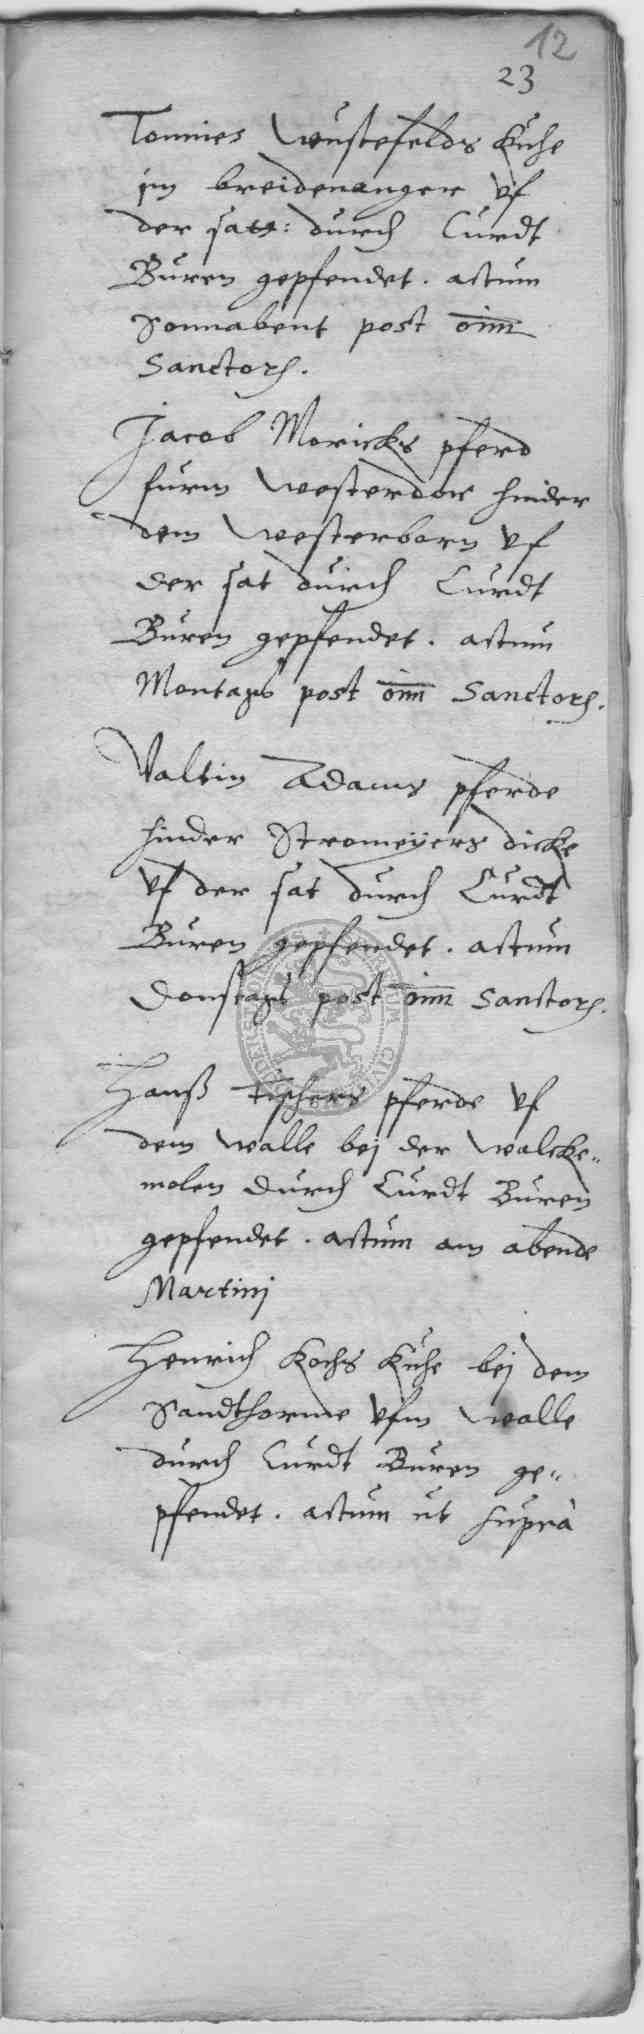 12
23
Tonnies Wustefelds Kuhe
im breidenanger vf
der satt: durch Curdt
Buren gepfendet. actum
Sonnabent post omn
Sanctorum.
Jacob Moricks pferd
furm Westerdor hinder
dem Westerborn vf
der sat durch Curdt
Buren gepfendet. actum
Montags post omn Sanctorum.
Valtin Adams pferde
hinder Stromeyers dicke
vf der sat durch Curdt
Buren gepfendet. actum
Donstags post omn Sanctorum.
Hanß Fischers pferde vf
dem Walle bej der Walcke-
molen durch Curdt Buren
gepfendet. actum am abende
Martinj
Henrich Kochs Kuhe bej dem
Sandthorme vfm Walle
durch Curdt Buren ge-
pfendet. actum ut supra